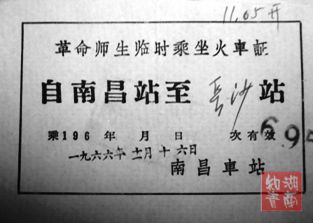 11.05开
革命师生临时乘坐火車証
自南昌站至长沙站
乘196 年 月 日 次有效
695
一九六六年十一月十六日
南昌車站
湖南知青